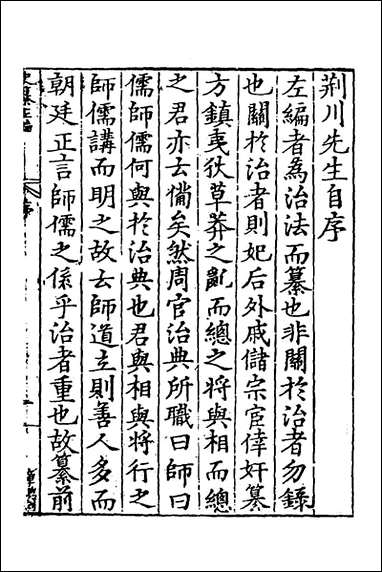 荆川先生自序
左編者為治法而纂也非關於治者勿錄
也關於治者則妃后外戚儲宗宦倖奸纂
方鎮夷狄草莽之亂而總之将與相而總
之君亦云備矣然周官治典所職曰師曰
儒師儒何與於治典也君與相與将行之
師儒講而明之故云師道立則善人多而
朝廷正言師儒之係乎治者重也故纂前